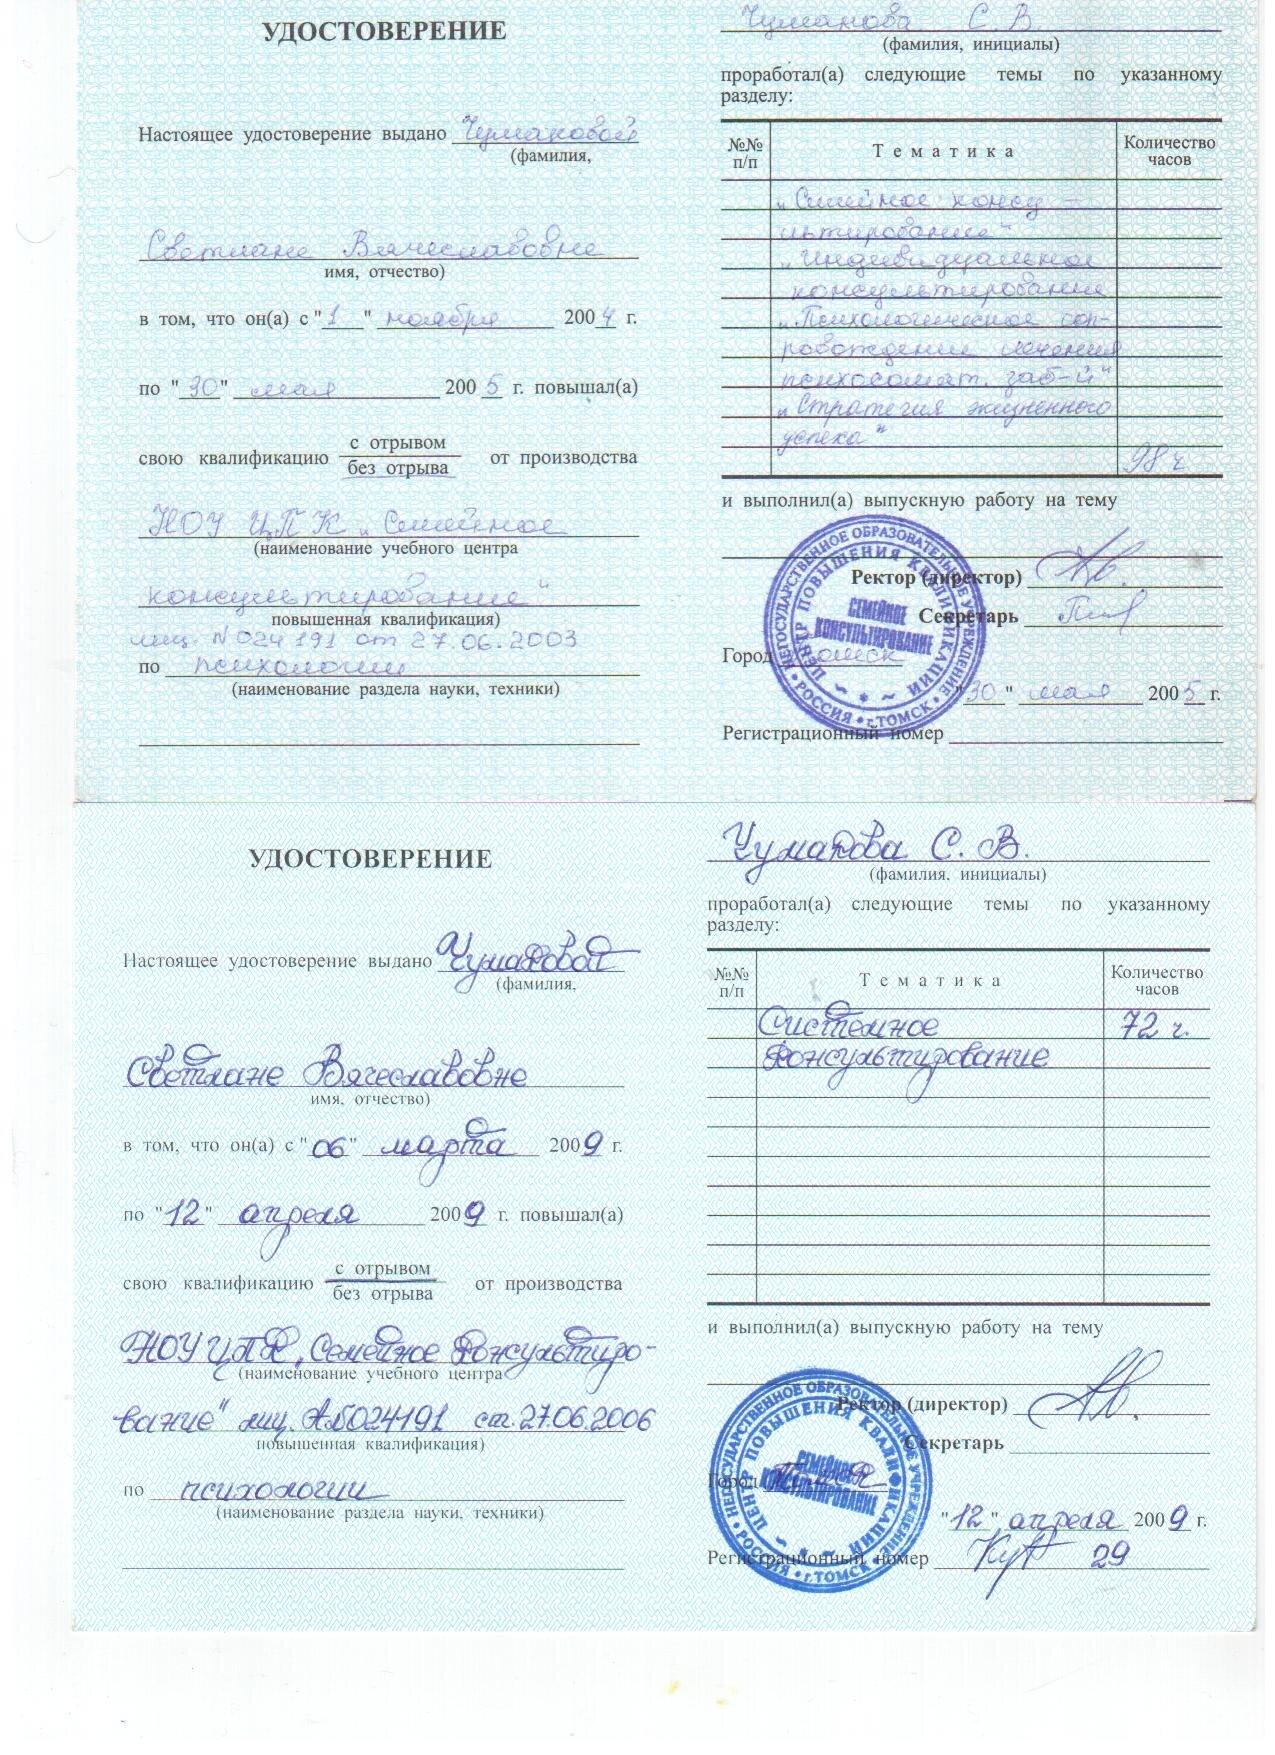 УДОСТОВЕРЕНИЕ
Настоящее удостоверение выдано Чумаковой
(фамилия,
Светлане Вячеславовне
имя, отчество)
в том, что он(а) с "1" ноября 2004 г.
по "30" мая 2005 г. повышал(а)
с отрывом
свою квалификацию от производства
без отрыва
НОУ ЦПК „Семейное
(наименование учебного центра
консультирование"
повышенная квалификация)
лиц. N 024191 от 27.06.2003
по психологии
(наименование раздела науки, техники)
Чумакова С. В
(фамилия, инициалы)
проработал(а) следующие темы по указанному
разделу:
№№ п/п Тематика Количество часов
„Семейное консу-
льтирование"
„Индивидуальное
консультирование
„Психологическое соп-
ровождение лечения
психосомат. заб-й"
„Стратегия жизненного
успеха"
98 ч
и выполнил(а) выпускную работу на тему
Ректор (директор)
Секретарь
Город Томск
"30" мая 2005 г.
Регистрационный номер
НЕГОСУДАРСТВЕННОЕ ОБРАЗОВАТЕЛЬНОЕ УЧРЕЖДЕНИЕ
РОССИЯ • г.ТОМСК
ЦЕНТР ПОВЫШЕНИЯ КВАЛИФИКАЦИИ
СЕМЕЙНОЕ
КОНСУЛЬТИРОВАНИЕ
УДОСТОВЕРЕНИЕ
Настоящее удостоверение выдано Чумаковой
(фамилия,
Светлане Вячеславовне
имя, отчество)
в том, что он(а) с "06" марта 2009 г.
по "12" апреля 2009 г. повышал(а)
с отрывом
свою квалификацию от производства
без отрыва
НОУ ЦПК „Семейное Консультиро-
(наименование учебного центра
вание" лиц. А№024191 от.27.06.2006
повышенная квалификация)
по психологии
(наименование раздела науки, техники)
Чумакова С. В.
(фамилия, инициалы)
проработал(а) следующие темы по указанному
разделу:
№№ п/п Тематика Количество часов
Системное 72 ч.
Консультирование
и выполнил(а) выпускную работу на тему
Ректор (директор)
Секретарь
Город Томск
"12" апреля 2009 г.
Регистрационный номер 29
НЕГОСУДАРСТВЕННОЕ ОБРАЗОВАТЕЛЬНОЕ УЧРЕЖДЕНИЕ
РОССИЯ • г.ТОМСК
ЦЕНТР ПОВЫШЕНИЯ КВАЛИФИКАЦИИ
СЕМЕЙНОЕ
КОНСУЛЬТИРОВАНИЕ